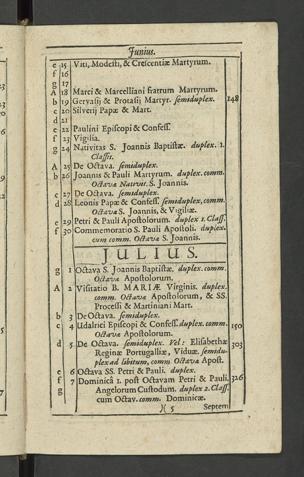 Junius.
e 15 Viti, Modesti, & Crescentiæ Martyrum.
f 16
g 17
A 18 Marci & Marcelliani fratrum Martyrum.
b 19 Gervasij & Protasij Martyr. semiduplex. 148
c 20 Silverij Papæ & Mart.
d 21
e 22 Paulini Episcopi & Confess.
f 23 Vigilia.
g 24 Nativitas S. Joannis Baptistæ. duplex. 1.
Classis.
A 25 De Octava. semiduplex.
b 26 Joannis & Pauli Martyrum. duplex. comm.
Octavæ Nativit. S. Joannis.
c 27 De Octava. semiduplex.
d 28 Leonis Papæ & Confess. semiduplex, comm.
Octavæ S. Joannis, & Vigiliæ.
e 29 Petri & Pauli Apostolorum. duplex 1. Class.
f 30 Commemoratio S. Pauli Apostoli. duplex.
cum comm. Octavæ S. Joannis.
JULIUS.
g 1 Octava S. Joannis Baptistæ. duplex. comm.
Octavæ Apostolorum.
A 2 Visitatio B. MARIÆ Virginis. duplex.
comm. Octavæ Apostolorum, & SS.
Processi & Martiniani Mart.
b 3 De Octava. semiduplex.
c 4 Udalrici Episcopi & Confess. duplex. comm. 150
Octavæ Apostolorum.
d 5 De Octava. semiduplex. Vel: Elisabethæ 303
Reginæ Portugalliæ, Viduæ. semidu-
plex ad libitum, comm Octavæ Apost.
e 6 Octava SS. Petri & Pauli. duplex.
f 7 Dominica 1. post Octavam Petri & Pauli. 326
g Angelorum Custodum. duplex 2. Class.
cum Octav. comm. Dominicæ.
)( 5 Septem